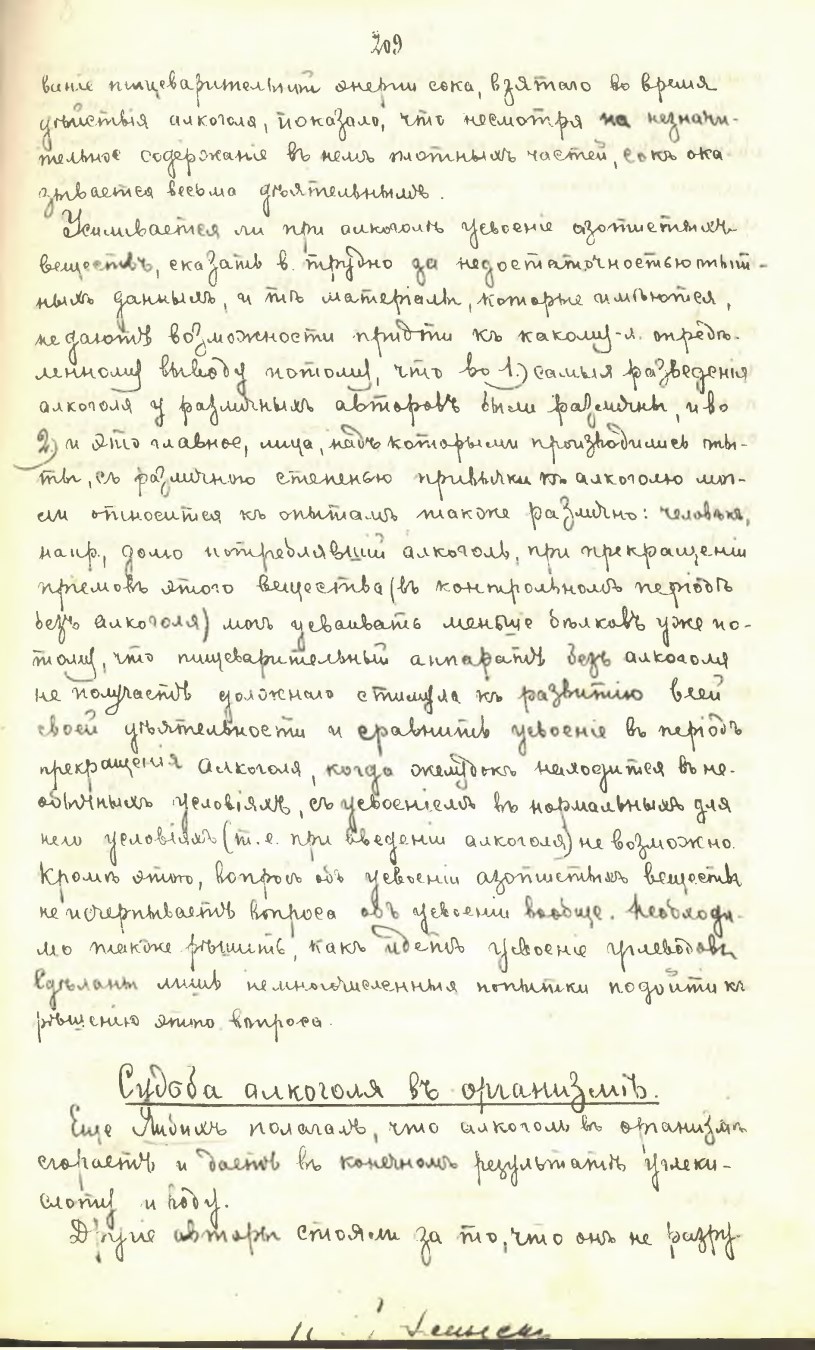 209
ваніе пищеварительной энергіи сока, взятаго во время
дѣйствія алкоголя, показало, что несмотря на незначи-
тельное содержаніе въ немъ плотныхъ частей, сокъ ока
зывается весьма дѣятельнымъ.
Усиливается ли при алкоголѣ усвоеніе азотистыхъ
веществъ, сказать трудно за недостаточностью опыт-
ныхъ данныхъ, и тѣ матеріалы, которые имѣются,
не даютъ возможности придти къ какому-л. опредѣ-
ленному выводу потому, что во 1.) самыя разведенія
алкоголя у различныхъ авторовъ были различны, и во
2.) и это главное, лица, надъ которыми производились опы-
ты, съ различною степенью привычки къ алкоголю мог-
ли относится къ опытамъ также различно: человѣкъ,
напр., долго потреблявшій алкоголь, при прекращеніи
пріемовъ этого вещества (въ контрольномъ періодѣ
безъ алкоголя) могъ усваивать меньше бѣлковъ уже по-
тому, что пищеварительный аппаратъ безъ алкоголя
не получаетъ должнаго стимула къ развитію всей
своей дѣятельности и сравнить усвоеніе въ періодъ
прекращенія алкоголя, когда желудокъ находится въ не-
обычныхъ условіяхъ, съ усвоеніемъ въ нормальныхъ для
него условіяхъ (т.е. при введеніи алкоголя) не возможно.
Кромѣ этого, вопросъ объ усвоеніи азотистыхъ веществъ
не исчерпываетъ вопроса объ усвоеніи вообще. Необходи-
мо также рѣшить, какъ идетъ усвоеніе углеводовъ
Сдѣланы лишь немногочисленныя попытки подойти къ
рѣшенію этого вопроса.
Судьба алкоголя въ организмѣ.
Еще Либихъ полагалъ, что алкоголь въ организмѣ
сгораетъ и даетъ въ конечномъ результатѣ углеки-
слоту и воду.
Другіе авторы стояли за то, что онъ не разру-